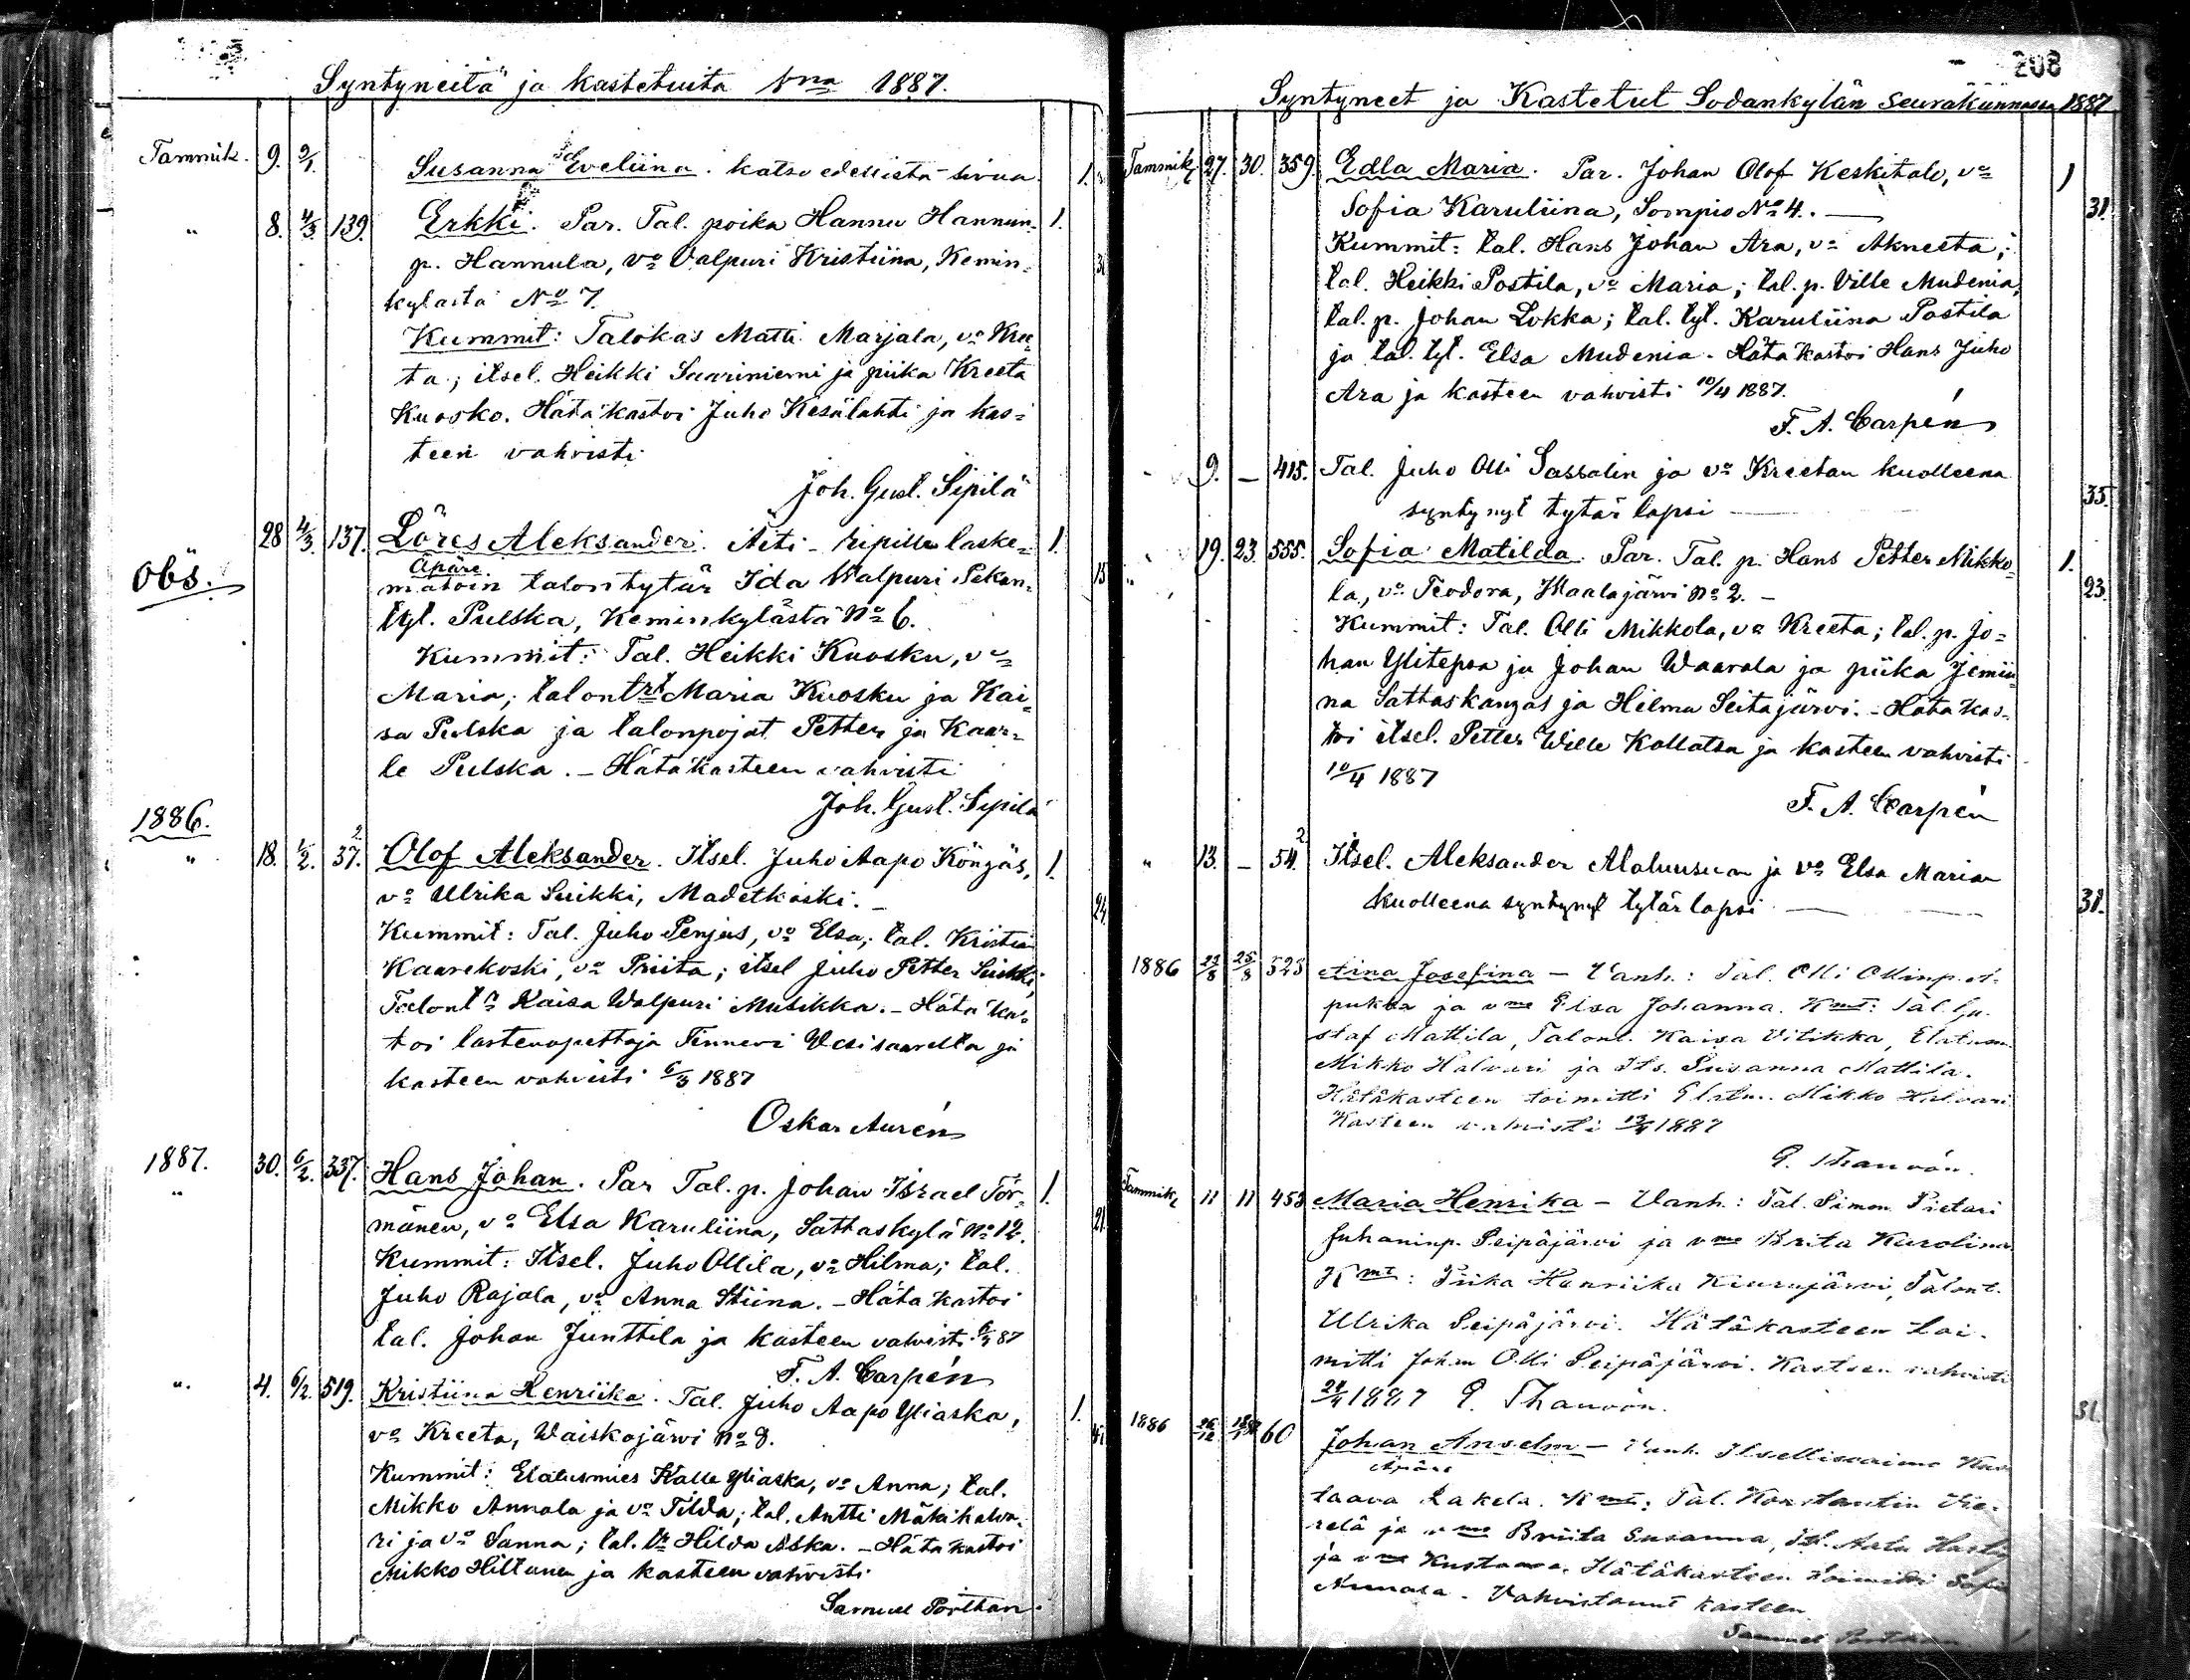 Syntyneitä ja kastetuita vna 1887.
Tammik. 9. 9/1. Susanna Eveliina. katso edellistä sivua. 1.
" 8. 4/3 139. Erkki. Par. Tal. poika Hannu Hannun- 1.
p. Hannula, vo Valpuri Kristiina, Kemin-
kylästä No 7.
Kummit: Talokas Matti Marjala, vo Kree-
ta; itsel. Heikki Saariniemi ja piika Kreeta
Kuosko. Hätäkastoi Juho Kesälahti ja kas-
teen vahvisti
Joh. Gust. Sipilä
28 4/3. 137. Löres Aleksander. Äiti - ripille laske- 1.
Obs.
Äpäre
matoin talontytär Ida Walpuri Pekan-
tyt. Pulska, Keminkylästä No 6.
Kummit: Tal. Heikki Kuosku, vo
Maria; talontrt Maria Kuosku ja Kai-
sa Pulska ja talonpojat Petter ja Kaar-
le Pulska. - Hätäkasteen vahvisti
Joh. Gust. Sipilä
1886.
" 18. 1/2. 37. 2 Olof Aleksander. Itsel. Juho Aapo Köngäs, 1.
vo Ulrika Suikki, Madetkoski. -
Kummit: Tal. Juho Penjus, vo Elsa; tal. Kristian
Kaarekoski, vo Priita; itsel Juho Petter Suikki,
Talont. Kaisa Walpuri Musikka. - Hätäkas-
toi lastenopettaja Finneri Vesisaarelta ja
kasteen vahvisti 6/3 1887
Oskar Aurén
1887.
" 30. 6/2. 337. Hans Johan. Par Tal. p. Johan Israel Tör- 1.
mänen, vo Elsa Karuliina, Sattaskylä No 12.
Kummit: Itsel. Juho Ollila, vo Hilma; tal.
Juho Rajala, vo Anna Stiina. - Hätäkastoi
tal. Johan Junttila ja kasteen vahvisti 87
F. A. Carpén
". 4. 6/2. 519. Kristiina Henriika. Tal. Juho Aapo Yliaska, 1.
vo Kreeta, Waiskojärvi No 8.
Kummit: Elatusmies Kalle Yliaska, vo Anna; tal.
Mikko Annala ja vo Tilda; tal. Antti Mäkihalva-
ri ja vo Sanna; tal. tr Hilda Aska. - Hätäkastoi
Mikko Hiltunen ja kasteen vahvisti
Samuel Porthan.
208
Syntyneet ja Kastetut Sodankylän Seurakunnassa 1887
Tammik. 27. 30. 359. Edla Maria. Par. Johan Olof Keskitalo, vo 1
Sofia Karuliina, Sompio No 4. - 31.
Kummit: tal. Hans Johan Ara, vo Akneeta;
tal. Heikki Postila, vo Maria; tal. p. Ville Mudenia,
tal. p. Johan Lokka; tal. tyt. Karuliina Postila
ja tal. tyt. Elsa Mudenia. Hätäkastoi Hans Juho
Ara ja kasteen vahvisti 10/4 1887.
F. A. Carpén
9. - 415. Tal. Juho Olli Sassalin ja vo Kreetan kuolleena
syntynyt tytär lapsi - 33.
" 19. 23. 555. Sofia Matilda. Par. Tal. p. Hans Petter Mikko- 1.
la, vo Teodora, Waalajärvi No 2. - 23.
Kummit: Tal. Olli Mikkola, vo Kreeta; tal. p. Jo-
han Ylitepsa ja Johan Waarala ja piika Jemii-
na Sattaskangas ja Hilma Seitajärvi. - Hätäkas-
toi itsel. Petter Wille Kallatsa ja kasteen vahvisti
10/4 1887
F. A. Carpén
" 13. - 54. 2 Itsel. Aleksander Alaluusuan ja vo Elsa Marian
kuolleena syntynyt tytärlapsi - 31.
1886 22/8 25/8 523 Aina Josefina - Vanh.: Tal. Olli Ollinp.
ja vmo Elsa Johanna. Kmt: Tal. Gu-
staf Mattila, Talont. Kaisa Vitikka, Elatusm.
Mikko Halvari ja Its. Susanna Mattila.
Hätäkasteen toimitti Elatm. Mikko Halvari
Kasteen vahvisti 1887
Tammik. 11 11 453 Maria Henrika - Vanh.: Tal. Simon Pietari
Juhaninp. Peipäjärvi ja vmo Brita Karolina
Kmt: Piika Henriika Kiurujärvi, Talont.
Ulrika Peipäjärvi. Hätäkasteen toi-
mitti Johan Olli Peipäjärvi. Kasteen vahvisti
1887
1886 26/12 60 Johan Anselm - Vanh. Itsellisvaimo Kus-
Äpäre
taava Kakela. Kmt: Tal. Konstantin Vie-
relä ja vmo Briita Susanna, Its.
ja vmo Kustaava. Hätäkasteen toimitti Sofia
Vahvistanut kasteen
Samuel Porthan